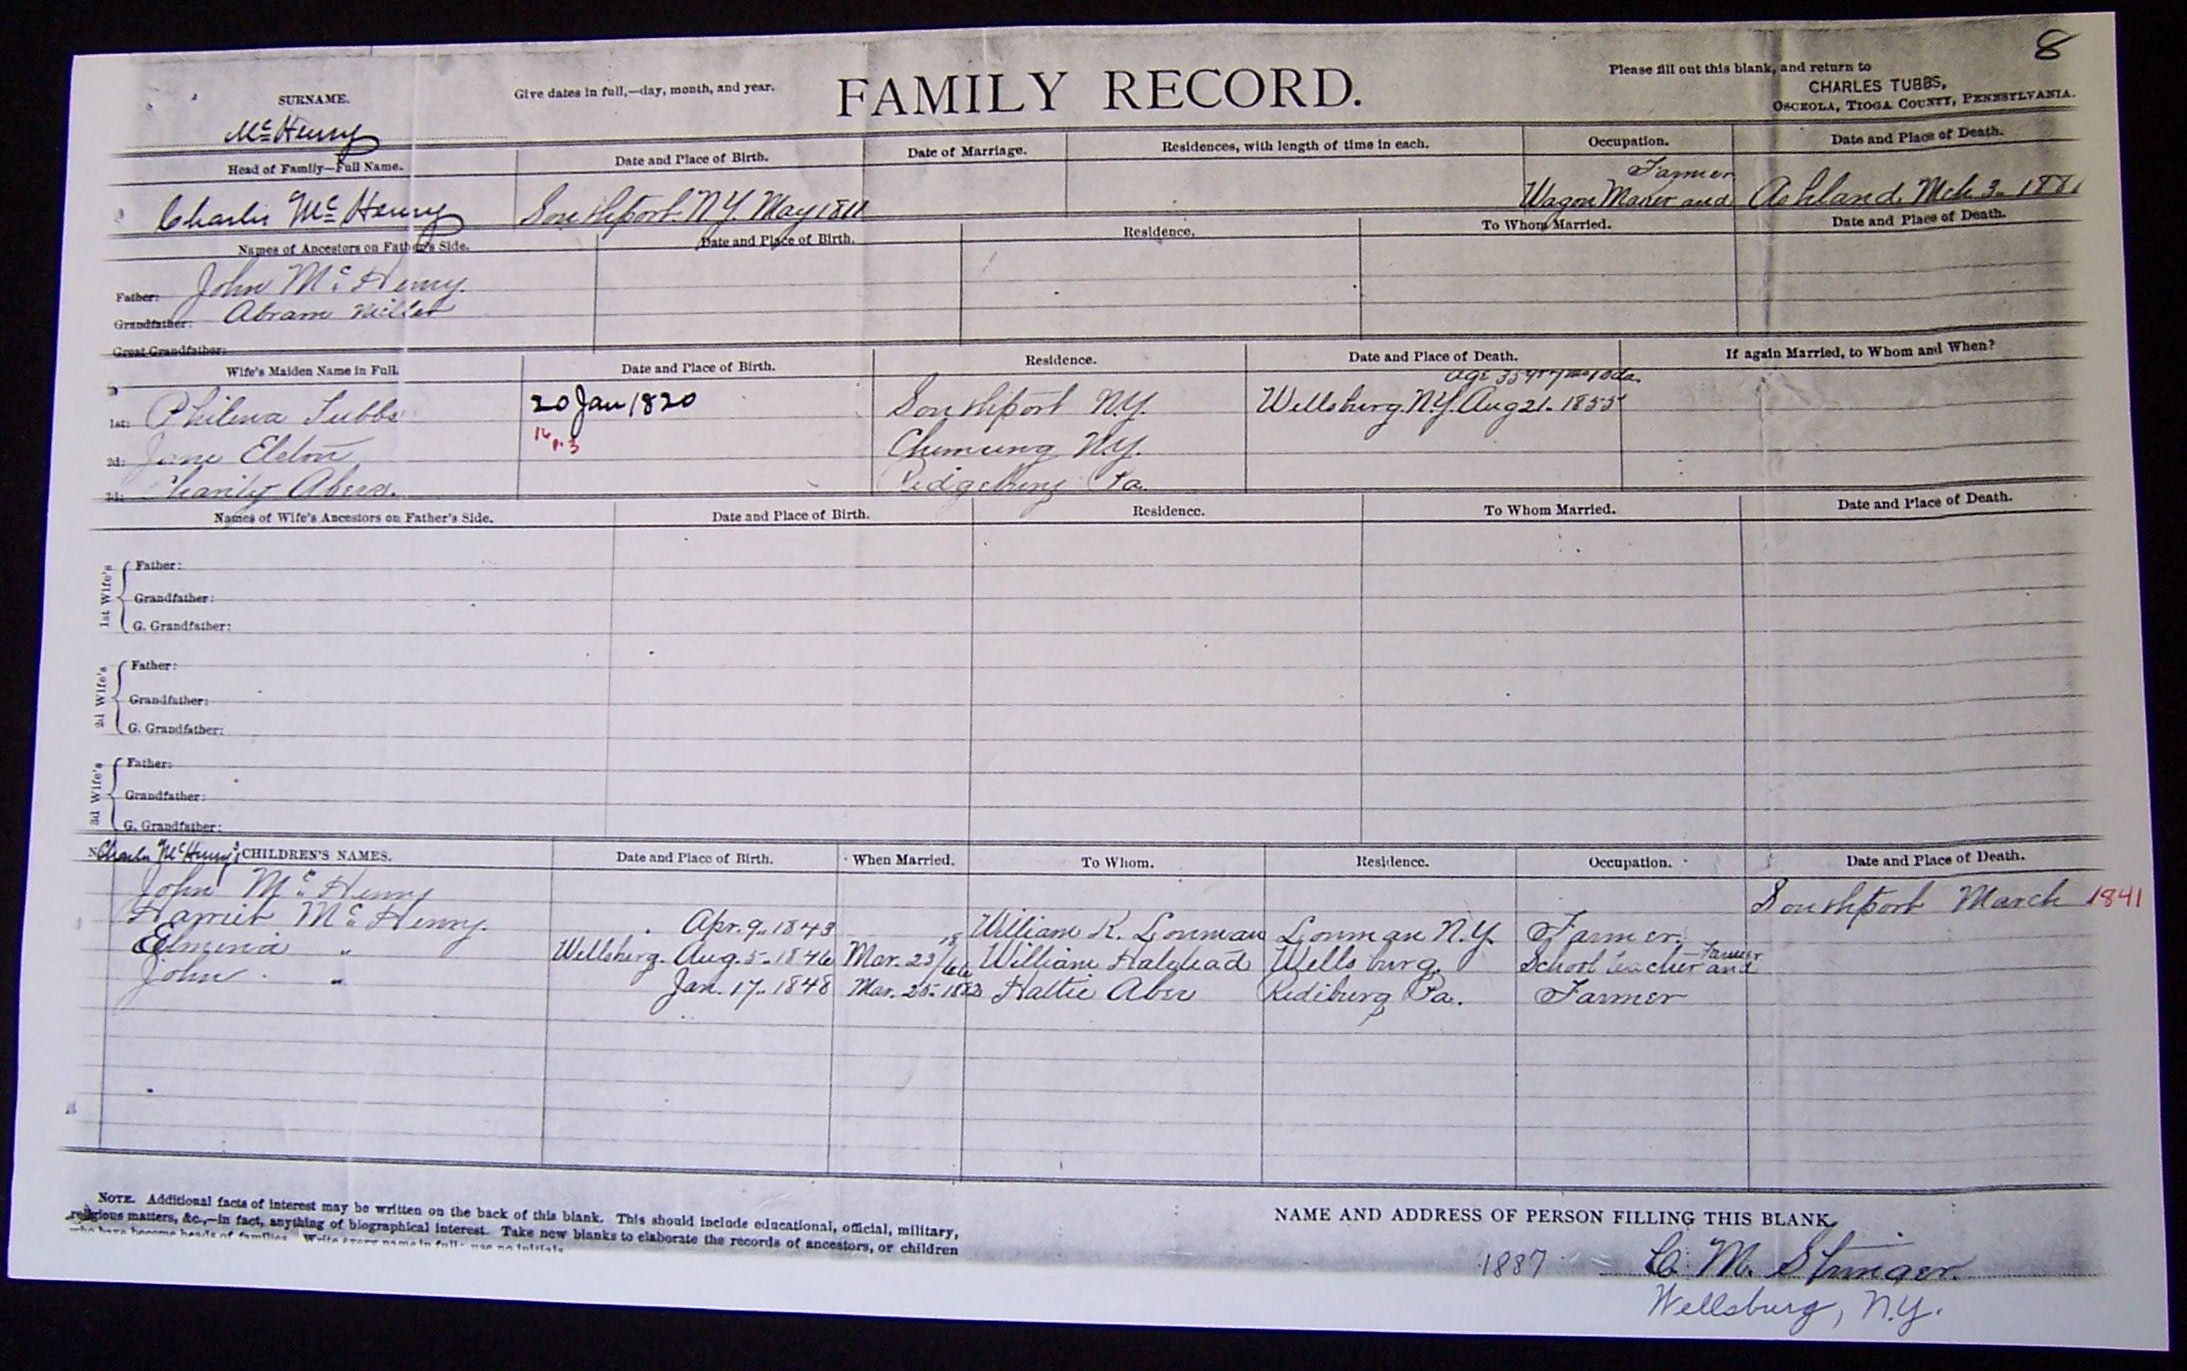 8
Please fill out this blank, and return to
CHARLES TUBBS,
OSCEOLA, TIOGA COUNTY, PENNSYLVANIA.
SURNAME.
Give dates in full,—day, month, and year.
FAMILY RECORD.
McHenry
Head of Family—Full Name.
Date and Place of Birth.
Date of Marriage.
Residences, with length of time in each.
Occupation.
Date and Place of Death.
Farmer
Charles McHenry
Southport N.Y. May 1811
Wagon Maker and
Ashland. Mch. 3. 1881
Names of Ancestors on Father's Side.
Date and Place of Birth.
Residence.
To Whom Married.
Date and Place of Death.
Father: John McHenry.
Grandfather: Abram Miller
Great Grandfather:
Wife's Maiden Name in Full.
Date and Place of Birth.
Residence.
Date and Place of Death.
If again Married, to Whom and When?
age 35 yr 7 mo 1 da.
1st: Philena Tubbs
20 Jan 1820
Southport N.Y.
Wellsburg. N.Y. Aug 21. 1855
16 p. 3
2d: Jane
Chemung N.Y.
3d: Charity
Ridgebury Pa.
Names of Wife's Ancestors on Father's Side.
Date and Place of Birth.
Residence.
To Whom Married.
Date and Place of Death.
1st Wife's
Father:
Grandfather:
G. Grandfather:
2d Wife's
Father:
Grandfather:
G. Grandfather:
3d Wife's
Father:
Grandfather:
G. Grandfather:
Charles McHenry's CHILDREN'S NAMES.
Date and Place of Birth.
When Married.
To Whom.
Residence.
Occupation.
Date and Place of Death.
John McHenry
Southport March 1841
Harriet McHenry.
Apr. 9. 1843
William K. Lowman
Lowman N.Y.
Farmer.
Elmina "
Wellsburg. Aug. 5. 1846
Mar. 23/66
William
Wellsburg.
School teacher and Farmer
John "
Jan. 17. 1848
Mar. 25.
Hattie Aber
Pa.
Farmer
NOTE. Additional facts of interest may be written on the back of this blank. This should include educational, official, military,
religious matters, &c.,—in fact, anything of biographical interest. Take new blanks to elaborate the records of ancestors, or children
who have become heads of families. Write every name in full; use no initials.
NAME AND ADDRESS OF PERSON FILLING THIS BLANK.
1887
C. M. Stringer.
Wellsburg, N.Y.